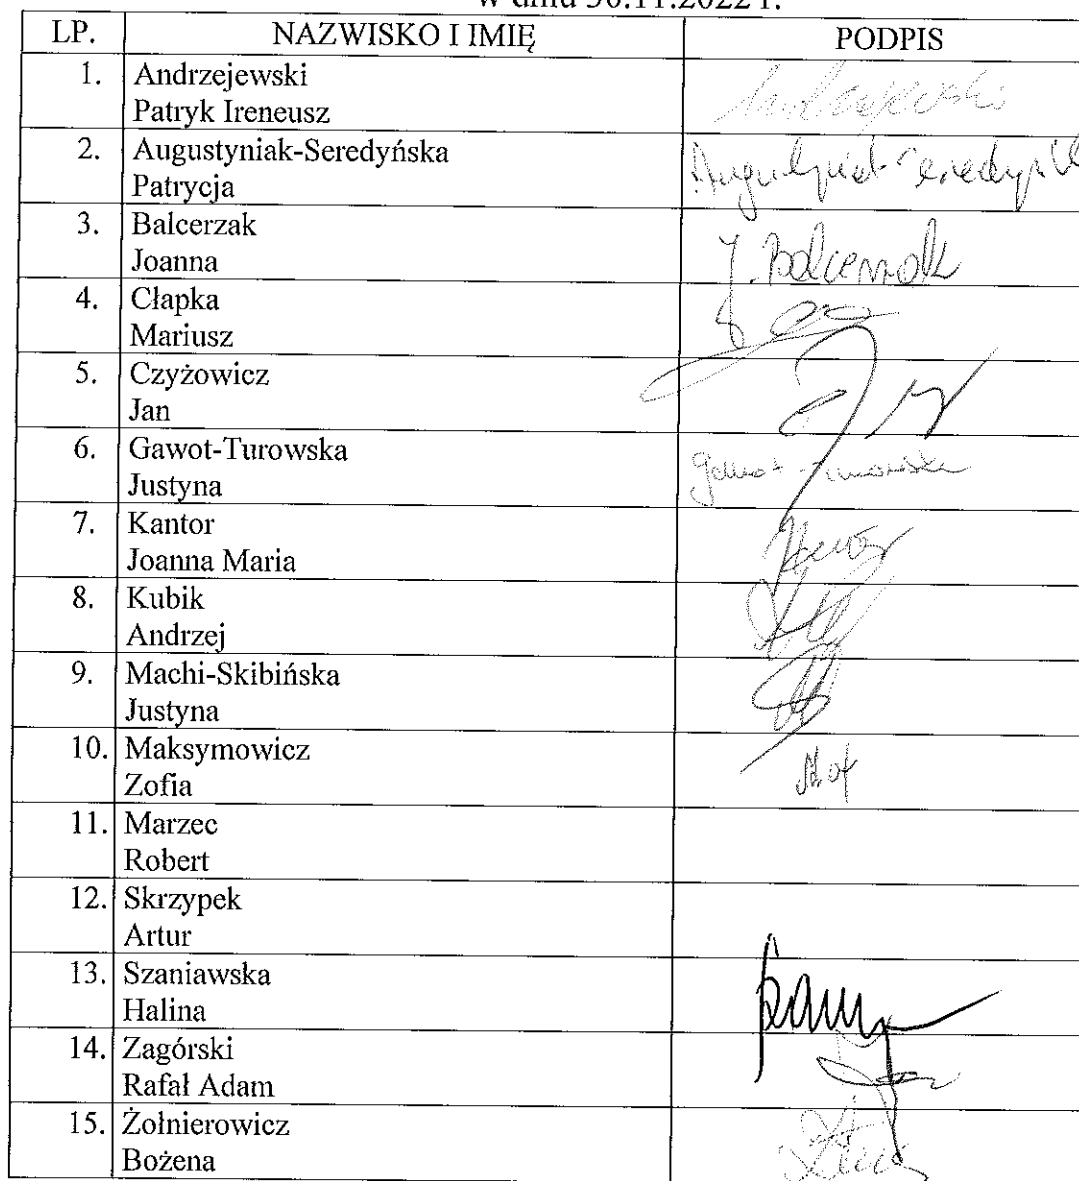 w dniu 30.11.2022 r.
LP. NAZWISKO I IMIĘ PODPIS
1. Andrzejewski
Patryk Ireneusz
2. Augustyniak-Seredyńska
Patrycja
3. Balcerzak
Joanna
J. Balcerzak
4. Cłapka
Mariusz
5. Czyżowicz
Jan
6. Gawot-Turowska
Justyna
7. Kantor
Joanna Maria
8. Kubik
Andrzej
9. Machi-Skibińska
Justyna
10. Maksymowicz
Zofia
11. Marzec
Robert
12. Skrzypek
Artur
13. Szaniawska
Halina
14. Zagórski
Rafał Adam
15. Żołnierowicz
Bożena